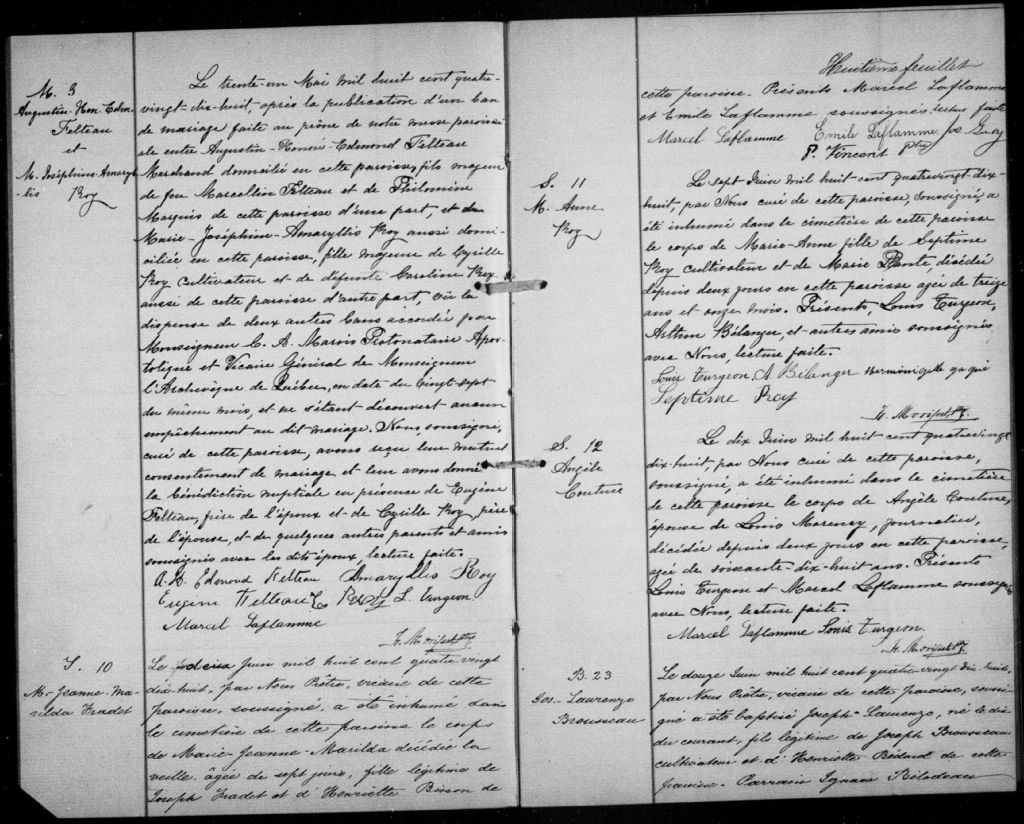 M. 3
Augustin-Hon. Edm.
Felteau
et
M. Joséphine-Amaryl-
lis Roy
Le trente-un Mai mil huit cent quatre-
vingt-dix-huit, après la publication d'un ban
de mariage faite au prône de notre messe paroissi-
ale entre Augustin-Honoré-Edmond Felteau
Marchand domicilié en cette paroisse, fils majeur
de feu Marcellin Felteau et de Philomine
Marquis de cette paroisse d'une part, et de
Marie-Joséphine-Amaryllis Roy aussi domi-
ciliée en cette paroisse, fille majeure de Cyrille
Roy cultivateur et de défunte Caroline Roy
aussi de cette paroisse d'autre part, vû la
dispense de deux autres bans accordée par
Monseigneur C. A. Marois Protonotaire Apos-
tolique et Vicaire Général de Monseigneur
l'Archevêque de Québec, en date du vingt-sept
du même mois, et ne s'étant découvert aucun
empêchement au dit mariage. Nous, soussigné,
curé de cette paroisse, avons reçu leur mutuel
consentement de mariage et leur avons donné
la bénédiction nuptiale en présence de Eugène
Felteau, frère de l'époux et de Cyrille Roy, père
de l'épouse, et de quelques autres parents et amis
soussignés avec les dits époux, lecture faite.
A. H. Edmond Felteau Amaryllis Roy
Eugène Felteau C Roy L. Turgeon
Marcel Laflamme
S. 10
M. Jeanne-Ma-
rilda Fradet
Le deux Juin mil huit cent quatre vingt
dix-huit, par Nous Prêtre, vicaire de cette
paroisse, soussigné, a été inhumé dans
le cimetière de cette paroisse le corps
de Marie-Jeanne-Marilda décédée la
veille âgée de sept jours, fille légitime de
Joseph Fradet et d'Henriette Bisson de
Huitième feuillet
cette paroisse. Présents Marcel Laflamme
et Emile Laflamme soussignés. lecture faite
Marcel Laflamme Emile Laflamme
P. Vincent Ptre
S. 11
M. Anne
Roy
Le sept Juin mil huit cent quatrevingt dix-
huit, par Nous curé de cette paroisse, soussigné, a
été inhumé dans le cimetière de cette paroisse
le corps de Marie-Anne fille de Septime
Roy cultivateur et de Marie Plante, décédée
depuis deux jours en cette paroisse agée de treize
ans et onze mois. Présents, Louis Turgeon,
Arthur Bélanger, et autres amis soussignés
avec Nous, lecture faite.
Louis Turgeon, A Bélanger
Septime Roy
S. 12
Angèle
Couture
Le dix Juin mil huit cent quatrevingt
dix-huit, par Nous curé de cette paroisse,
soussigné, a été inhumé dans le cimetière
de cette paroisse le corps de Angèle Couture,
épouse de Louis Morency, journalier,
décédée depuis deux jours en cette paroisse,
agée de soixante-dix-huit ans. Présents
Louis Turgeon et Marcel Laflamme soussignés
avec Nous, lecture faite.
Marcel Laflamme Louis Turgeon.
B. 23
Jos. Laurenzo
Brousseau
Le douze Juin mil huit cent quatre-vingt dix-huit,
par Nous Prêtre, vicaire de cette paroisse, soussi-
gné a été baptisé Joseph-Laurenzo, né le dix
du courant, fils légitime de Joseph Brousseau
cultivateur et d'Henriette Bédard de cette
paroisse. Parrain Ignace Bilodeau